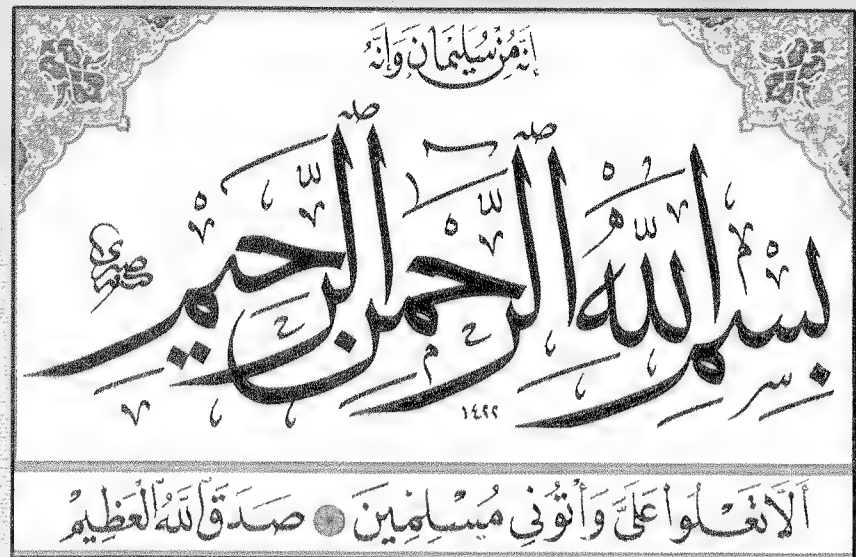 إِنَّهُ مِنْ سُلَيْمَانَ وَإِنَّهُ
بِسْمِ اللَّهِ الرَّحْمَنِ الرَّحِيمِ
صبري
١٤٢٢
أَلَّا تَعْلُوا عَلَيَّ وَأْتُونِي مُسْلِمِينَ صَدَقَ اللَّهُ الْعَظِيمْ